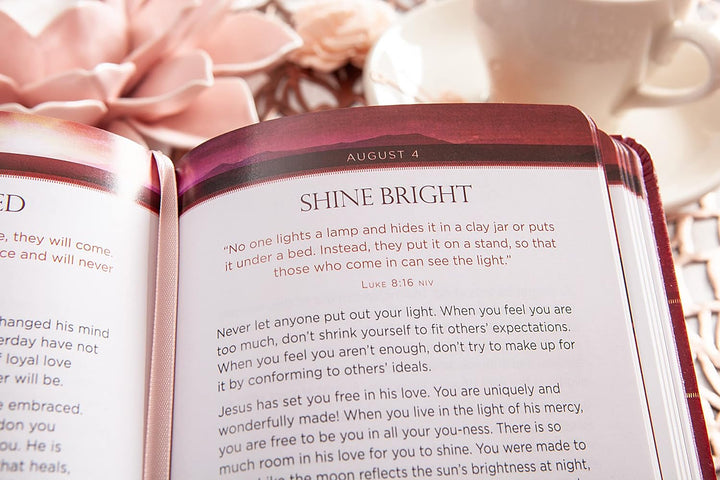 ED
, they will come.
ce and will never
hanged his mind
erday have not
f loyal love
er will be.
e embraced.
don you
ou. He is
that heals,
AUGUST 4
SHINE BRIGHT
“No one lights a lamp and hides it in a clay jar or puts
it under a bed. Instead, they put it on a stand, so that
those who come in can see the light.”
LUKE 8:16 NIV
Never let anyone put out your light. When you feel you are
too much, don’t shrink yourself to fit others’ expectations.
When you feel you aren’t enough, don’t try to make up for
it by conforming to others’ ideals.
Jesus has set you free in his love. You are uniquely and
wonderfully made! When you live in the light of his mercy,
you are free to be you in all your you-ness. There is so
much room in his love for you to shine. You were made to
like the moon reflects the sun’s brightness at night,